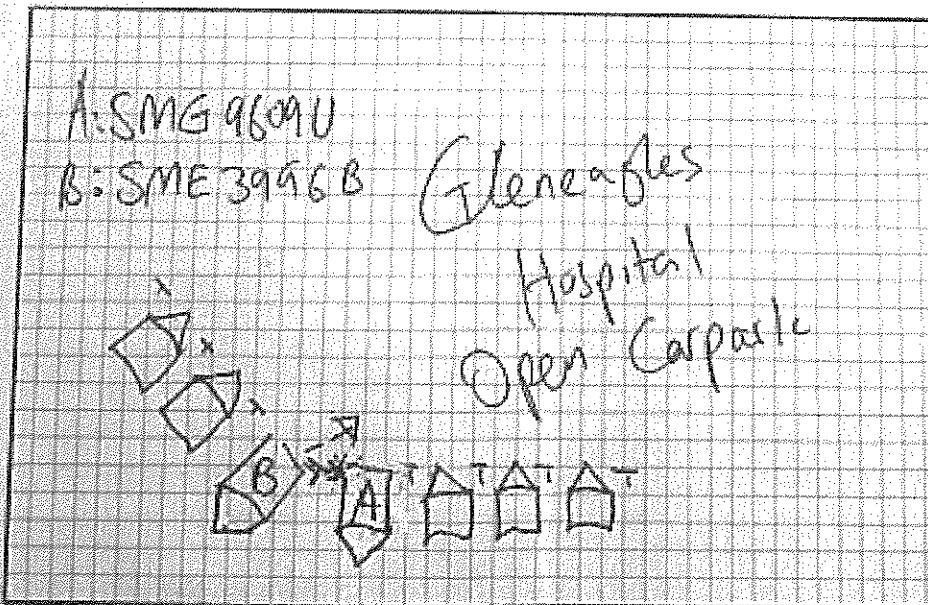 A: SMG 9609U
B: SME 3996B
Gleneagles
Hospital
Open Carpark
B
A